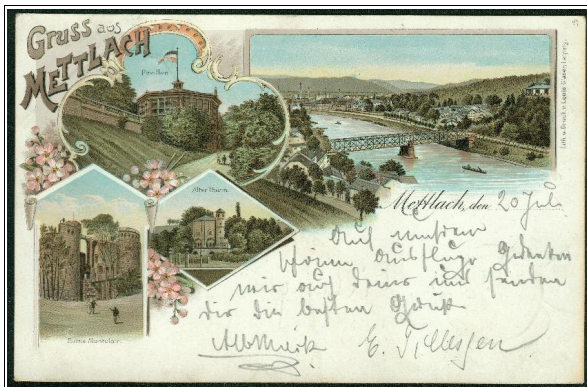 Gruss aus
METTLACH
Pavillon
Alter Thurm.
Ruine Montclair.
Lith. u. Druck v. Louis Glaser, Leipzig.
Mettlach, den 20 Juli
Auf unsrem
schönen Ausfluge gedenken
wir auch deiner und senden
dir die besten Grüße
E. Tillessen